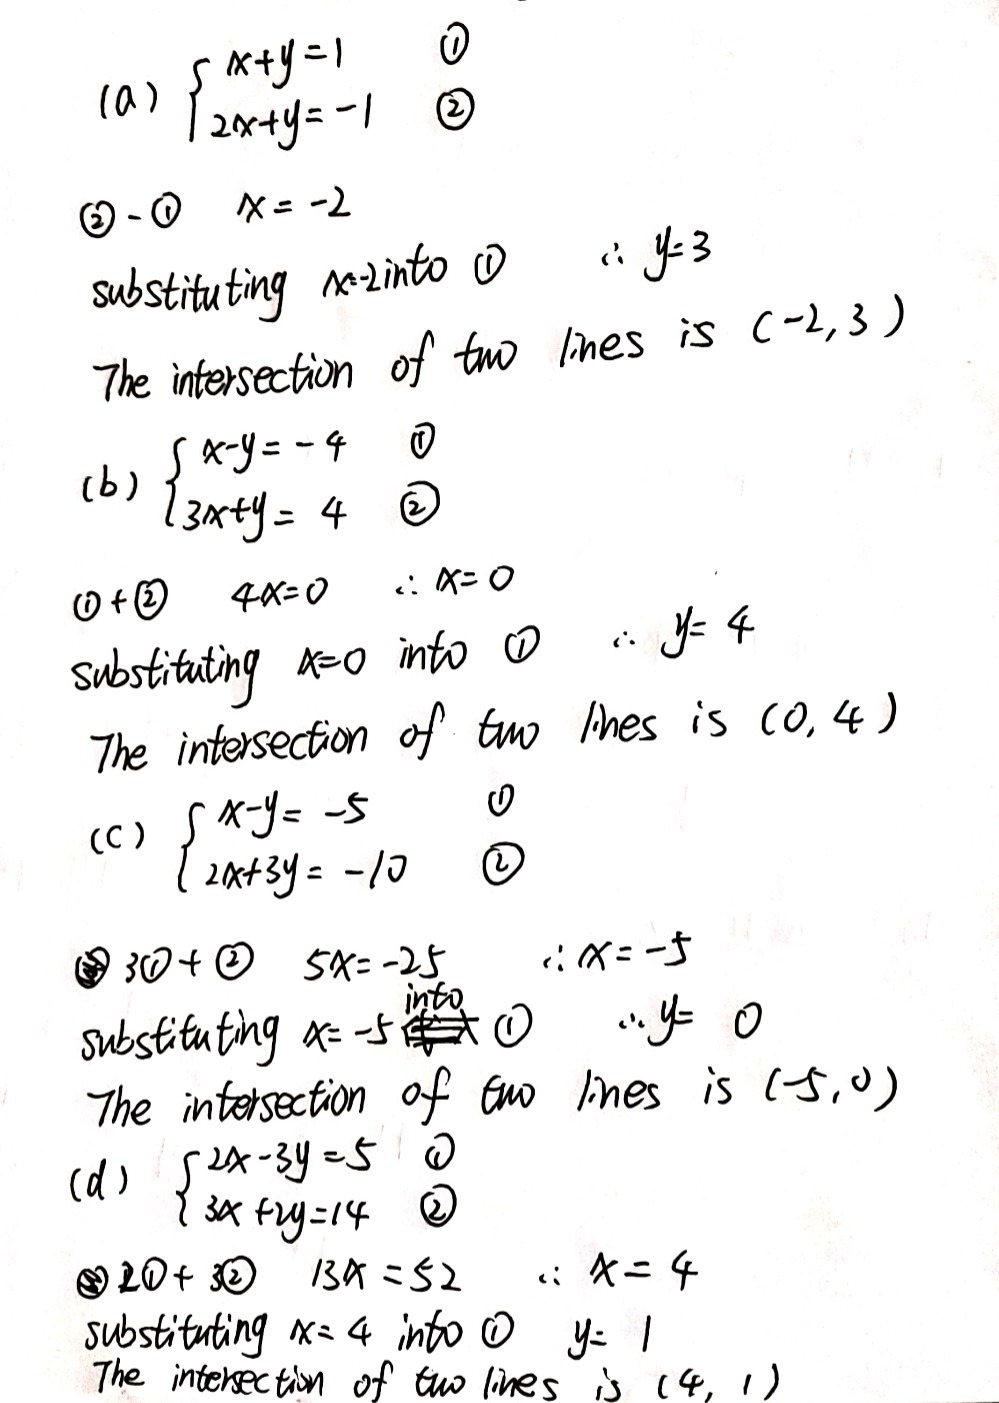 (a) { x+y=1 ①
2x+y=-1 ②
②-① x=-2
substituting x=-2 into ① ∴ y=3
The intersection of two lines is (-2,3)
(b) { x-y=-4 ①
3x+y=4 ②
①+② 4x=0 ∴ x=0
substituting x=0 into ① ∴ y=4
The intersection of two lines is (0,4)
(c) { x-y=-5 ①
2x+3y=-10 ②
3①+② 5x=-25 ∴ x=-5
substituting x=-5 into ① ∴ y=0
The intersection of two lines is (-5,0)
(d) { 2x-3y=5 ①
3x+2y=14 ②
2①+3② 13x=52 ∴ x=4
substituting x=4 into ① y=1
The intersection of two lines is (4,1)